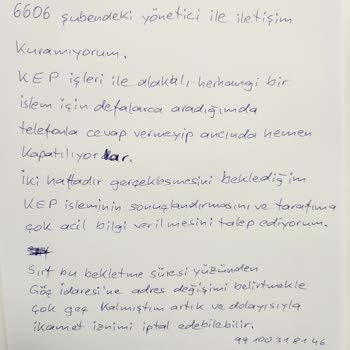 6606 şubendeki yönetici ile iletişim
kuramıyorum.
KEP işleri ile alakalı herhangi bir
islem için defalarca aradığımda
telefonla cevap vermeyip ancında hemen
kapatılıyorlar.
İki haftadır gerçekleşmesini beklediğim
KEP isleminin sonuçlandırmasını ve tarafıma
çok acil bilgi verilmesini talep ediyorum.
Sırf bu bekletme süresi yüzünden
Göç idaresi'ne adres değişimi belirtmekle
çok geç kalmıştım artık ve dolayısıyla
ikamet iznimi iptal edebilebilir.
99 100 318 146